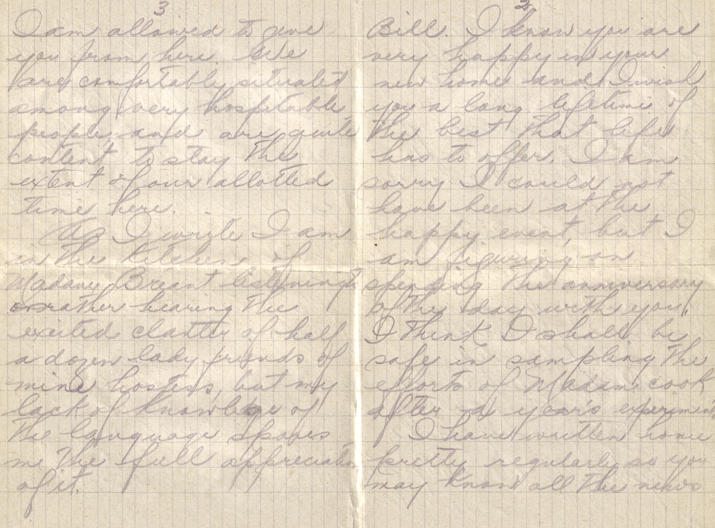 2
Bill. I know you are
very happy in your
new home and I wish
you a long lifetime of
the best that life
has to offer. I am
sorry I could not
have been at the
happy event, but I
am figuring on
spending the anniversary
o the day with you.
I think I shall be
safe in sampling the
efforts of Madam cook
after a year's experiment
I have written home
pretty regularly so you
may know all the news
3
I am allowed to give
you from here. We
are comfortably situated
among very hospitable
people and are quite
content to stay the
extent of our allotted
time here.
As I write I am
in the kitchen of
Madame Breant listening
or rather hearing the
excited clatter of half
a dozen lady friends of
mine hostess, but my
lack of knowledge of
the language spares
me the full appreciation
of it.